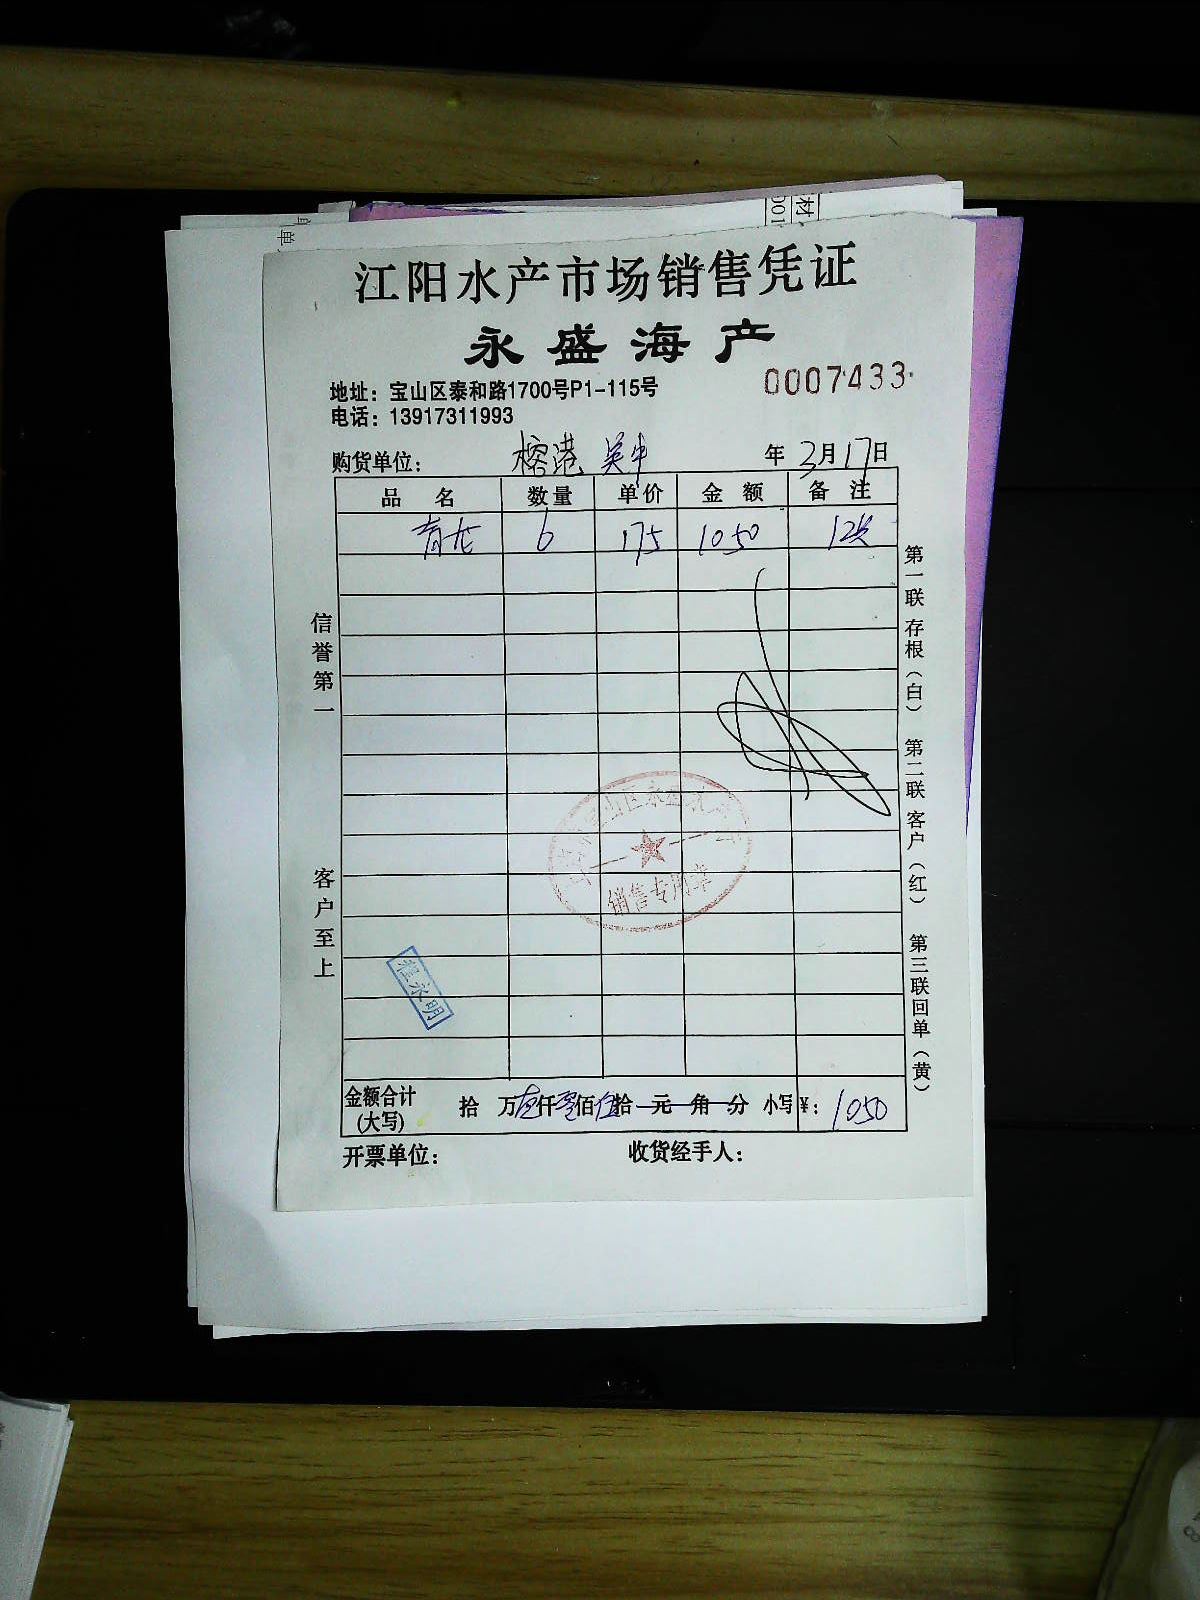 江阳水产市场销售凭证
永盛海产
地址：宝山区泰和路1700号P1-115号
0007433
电话：13917311993
购货单位： 榕港 年3月17日
品名 数量 单价 金额 备注
青龙 6 175 1050 12
信誉第一
客户至上
第一联存根（白） 第二联客户（红） 第三联回单（黄）
销售专用章
程永明
金额合计 拾 万壹仟零佰伍拾 元 角 分 小写¥：1050
(大写)
开票单位： 收货经手人：